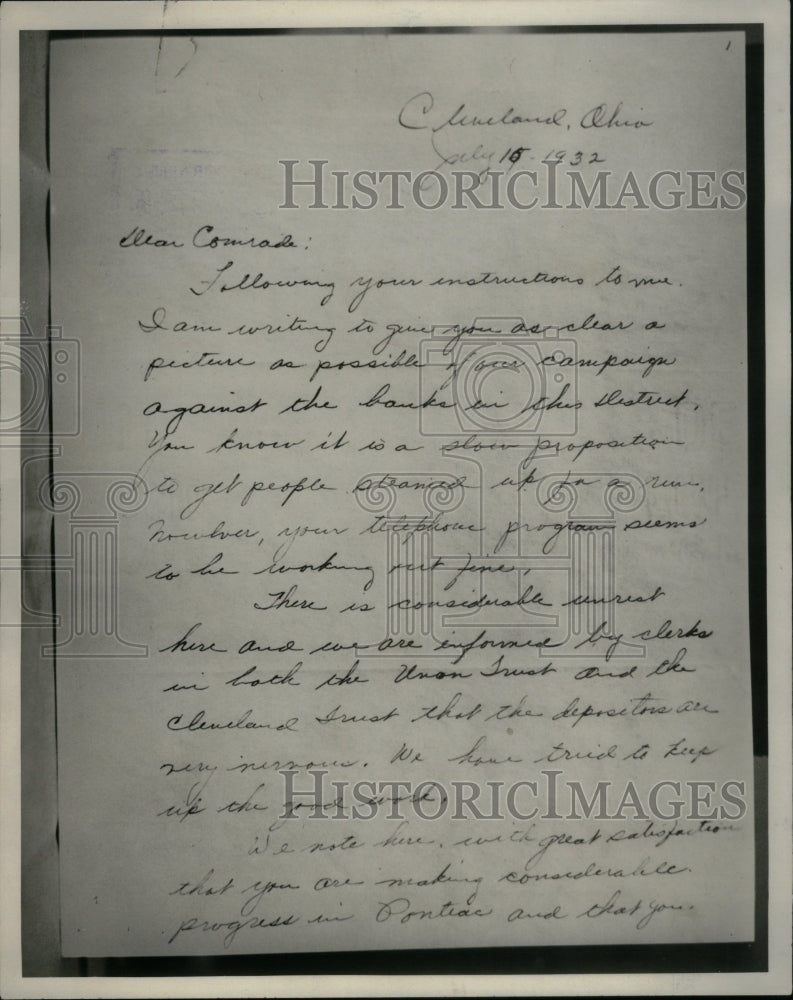 1
Cleveland, Ohio
July 15 - 1932
HISTORICIMAGES
Dear Comrade:
Following your instructions to me.
I am writing to give you as clear a
picture as possible of our campaign
against the banks in this District.
You know it is a slow proposition
to get people steamed up for a run.
However, your telephone program seems
to be working out fine.
There is considerable unrest
here and we are informed by clerks
in both the Union Trust and the
Cleveland Trust that the depositors are
very nervous. We have tried to keep
up the good work.
HISTORICIMAGES
We note here, with great satisfaction
that you are making considerable
progress in Pontiac and that you